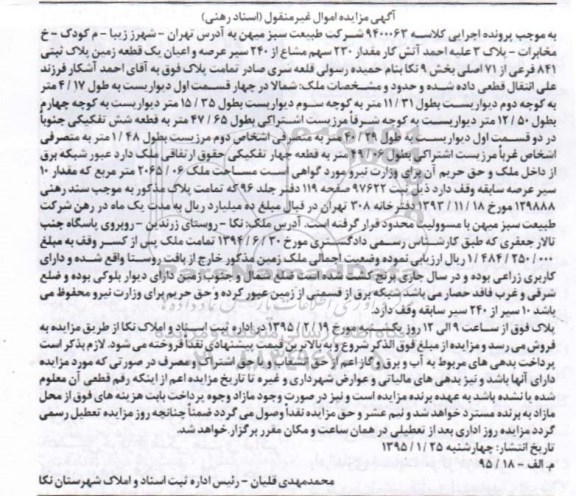 آگهی مزایده اموال غیرمنقول (اسناد رهنی)
به موجب پرونده اجرایی کلاسه ۹۴۰۰۰۶۳ شرکت طبیعت سبز میهن به آدرس تهران - شهرز زیبا - م کودک - خ
مخابرات - پلاک ۳ علیه احمد آتش کار مقدار ۲۳۰ سهم مشاع از ۲۴۰ سیر عرصه و اعیان یک قطعه زمین پلاک ثبتی
۸۴۱ فرعی از ۷۱ اصلی بخش ۹ نکا بنام حمیده رسولی قلعه سری صادر تمامت پلاک فوق به آقای احمد آشکار فرزند
علی انتقال قطعی داده شده و حدود و مشخصات ملک: شمالا در چهار قسمت اول دیواریست به طول ۱۷ / ۴ متر
به کوچه دوم دیواریست بطول ۳۱ / ۱۱ متر به کوچه سوم دیواریست بطول ۳۵ / ۱۵ متر دیواریست به کوچه چهارم
بطول ۵۰ / ۱۲ متر دیواریست به کوچه شرقاً مرزست اشتراکی بطول ۶۵ / ۴۷ متر به قطعه شش تفکیکی جنوباً
در دو قسمت اول دیواریست به طول ۳۹ / ۴۰ متر به متصرفی اشخاص دوم مرزیست بطول ۴۸ / ۱ متر به متصرفی
اشخاص غرباً مرزیست اشتراکی بطول ۰۶ / ۴۹ متر به قطعه چهار تفکیکی حقوق ارتفاقی ملک دارد عبور شبکه برق
از داخل ملک و حق حریم آن برای وزارت نیرو مورد گواهی است مساحت ملک ۰۶ / ۲۰۶۵ متر مربع که مقدار ۱۰
سیر عرصه سابقه وقف دارد ذیل ثبت ۹۷۶۲۲ صفحه ۱۱۹ دفتر جلد ۹۶ که تمامت پلاک مذکور به موجب سند رهنی
۱۲۹۸۸۸ مورخ ۱۸ / ۱۱ / ۱۳۹۳ دفترخانه ۳۰۸ تهران در قبال مبلغ ده میلیارد ریال به مدت یک ماه در رهن شرکت
طبیعت سبز میهن با مسوولیت محدود قرار گرفته است. آدرس ملک: نکا - روستای زرندین - روبروی پاسگاه جنب
تالار جعفری که طبق کارشناس رسمی دادگستری مورخ ۳۰ / ۶ / ۱۳۹۴ تمامت ملک پس از کسر وقف به مبلغ
۰۰۰ / ۲۵۰ / ۴۸۴ / ۱ ریال ارزیابی نموده وضعیت اجمالی ملک زمین مذکور خارج از بافت روستا واقع شده و دارای
کاربری زراعی بوده و در سال جاری برنج کشت شده است ضلع شمال و جنوب زمین دارای دیوار بلوکی بوده و ضلع
شرقی و غرب فاقد حصار می باشد شبکه برق از قسمتی از زمین عبور کرده و حق حریم برای وزارت نیرو محفوظ می
باشد ۱۰ سیر از ۲۴۰ سیر سابقه وقف دارد.
پلاک فوق از ساعت ۹ الی ۱۲ روز یکشنبه مورخ ۱۹ / ۲ / ۱۳۹۵ در اداره ثبت اسناد و املاک نکا از طریق مزایده به
فروش می رسد و مزایده از مبلغ فوق الذکر شروع و به بالاترین قیمت پیشنهادی نقداً فروخته می شود. لازم بذکر است
پرداخت بدهی های مربوط به آب و برق و گاز اعم از حق انشعاب و حق اشتراک و مصرف در صورتی که مورد مزایده
دارای آنها باشد و نیز بدهی های مالیاتی و عوارض شهرداری و غیره تا تاریخ مزایده اعم از اینکه رقم قطعی آن معلوم
شده یا نشده باشد به عهده برنده مزایده است و نیز در صورت وجود مازاد وجوه پرداخت بابت هزینه های فوق از محل
مازاد به برنده مسترد خواهد شد و نیم عشر و حق مزایده نقداً وصول می گردد ضمناً چنانچه روز مزایده تعطیل رسمی
گردد مزایده روز اداری بعد از تعطیلی در همان ساعت و مکان مقرر برگزار خواهد شد.
تاریخ انتشار: چهارشنبه ۲۵ / ۱ / ۱۳۹۵
م. الف - ۱۸ / ۹۵
محمدمهدی قلیان - رئیس اداره ثبت اسناد و املاک شهرستان نکا